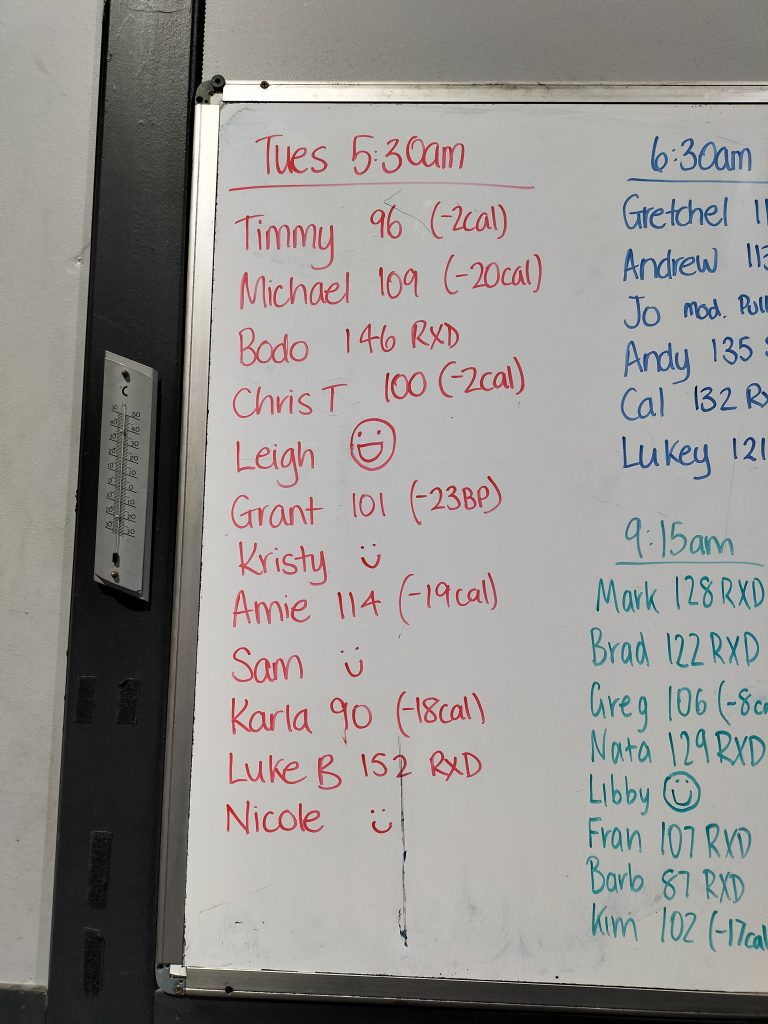 Tues 5:30am
Timmy 96 (-2cal)
Michael 109 (-20cal)
Bodo 146 RXD
Chris T 100 (-2cal)
Leigh
Grant 101 (-23BP)
Kristy
Amie 114 (-19cal)
Sam
Karla 90 (-18cal)
Luke B 152 RXD
Nicole
6:30am
Gretchel 11
Andrew 113
Jo mod. Pull
Andy 135
Cal 132 Rx
Lukey 121
9:15am
Mark 128 RXD
Brad 122 RXD
Greg 106 (-8ca
Nata 129 RXD
Libby
Fran 107 RXD
Barb 87 RXD
Kim 102 (-17cal
°C